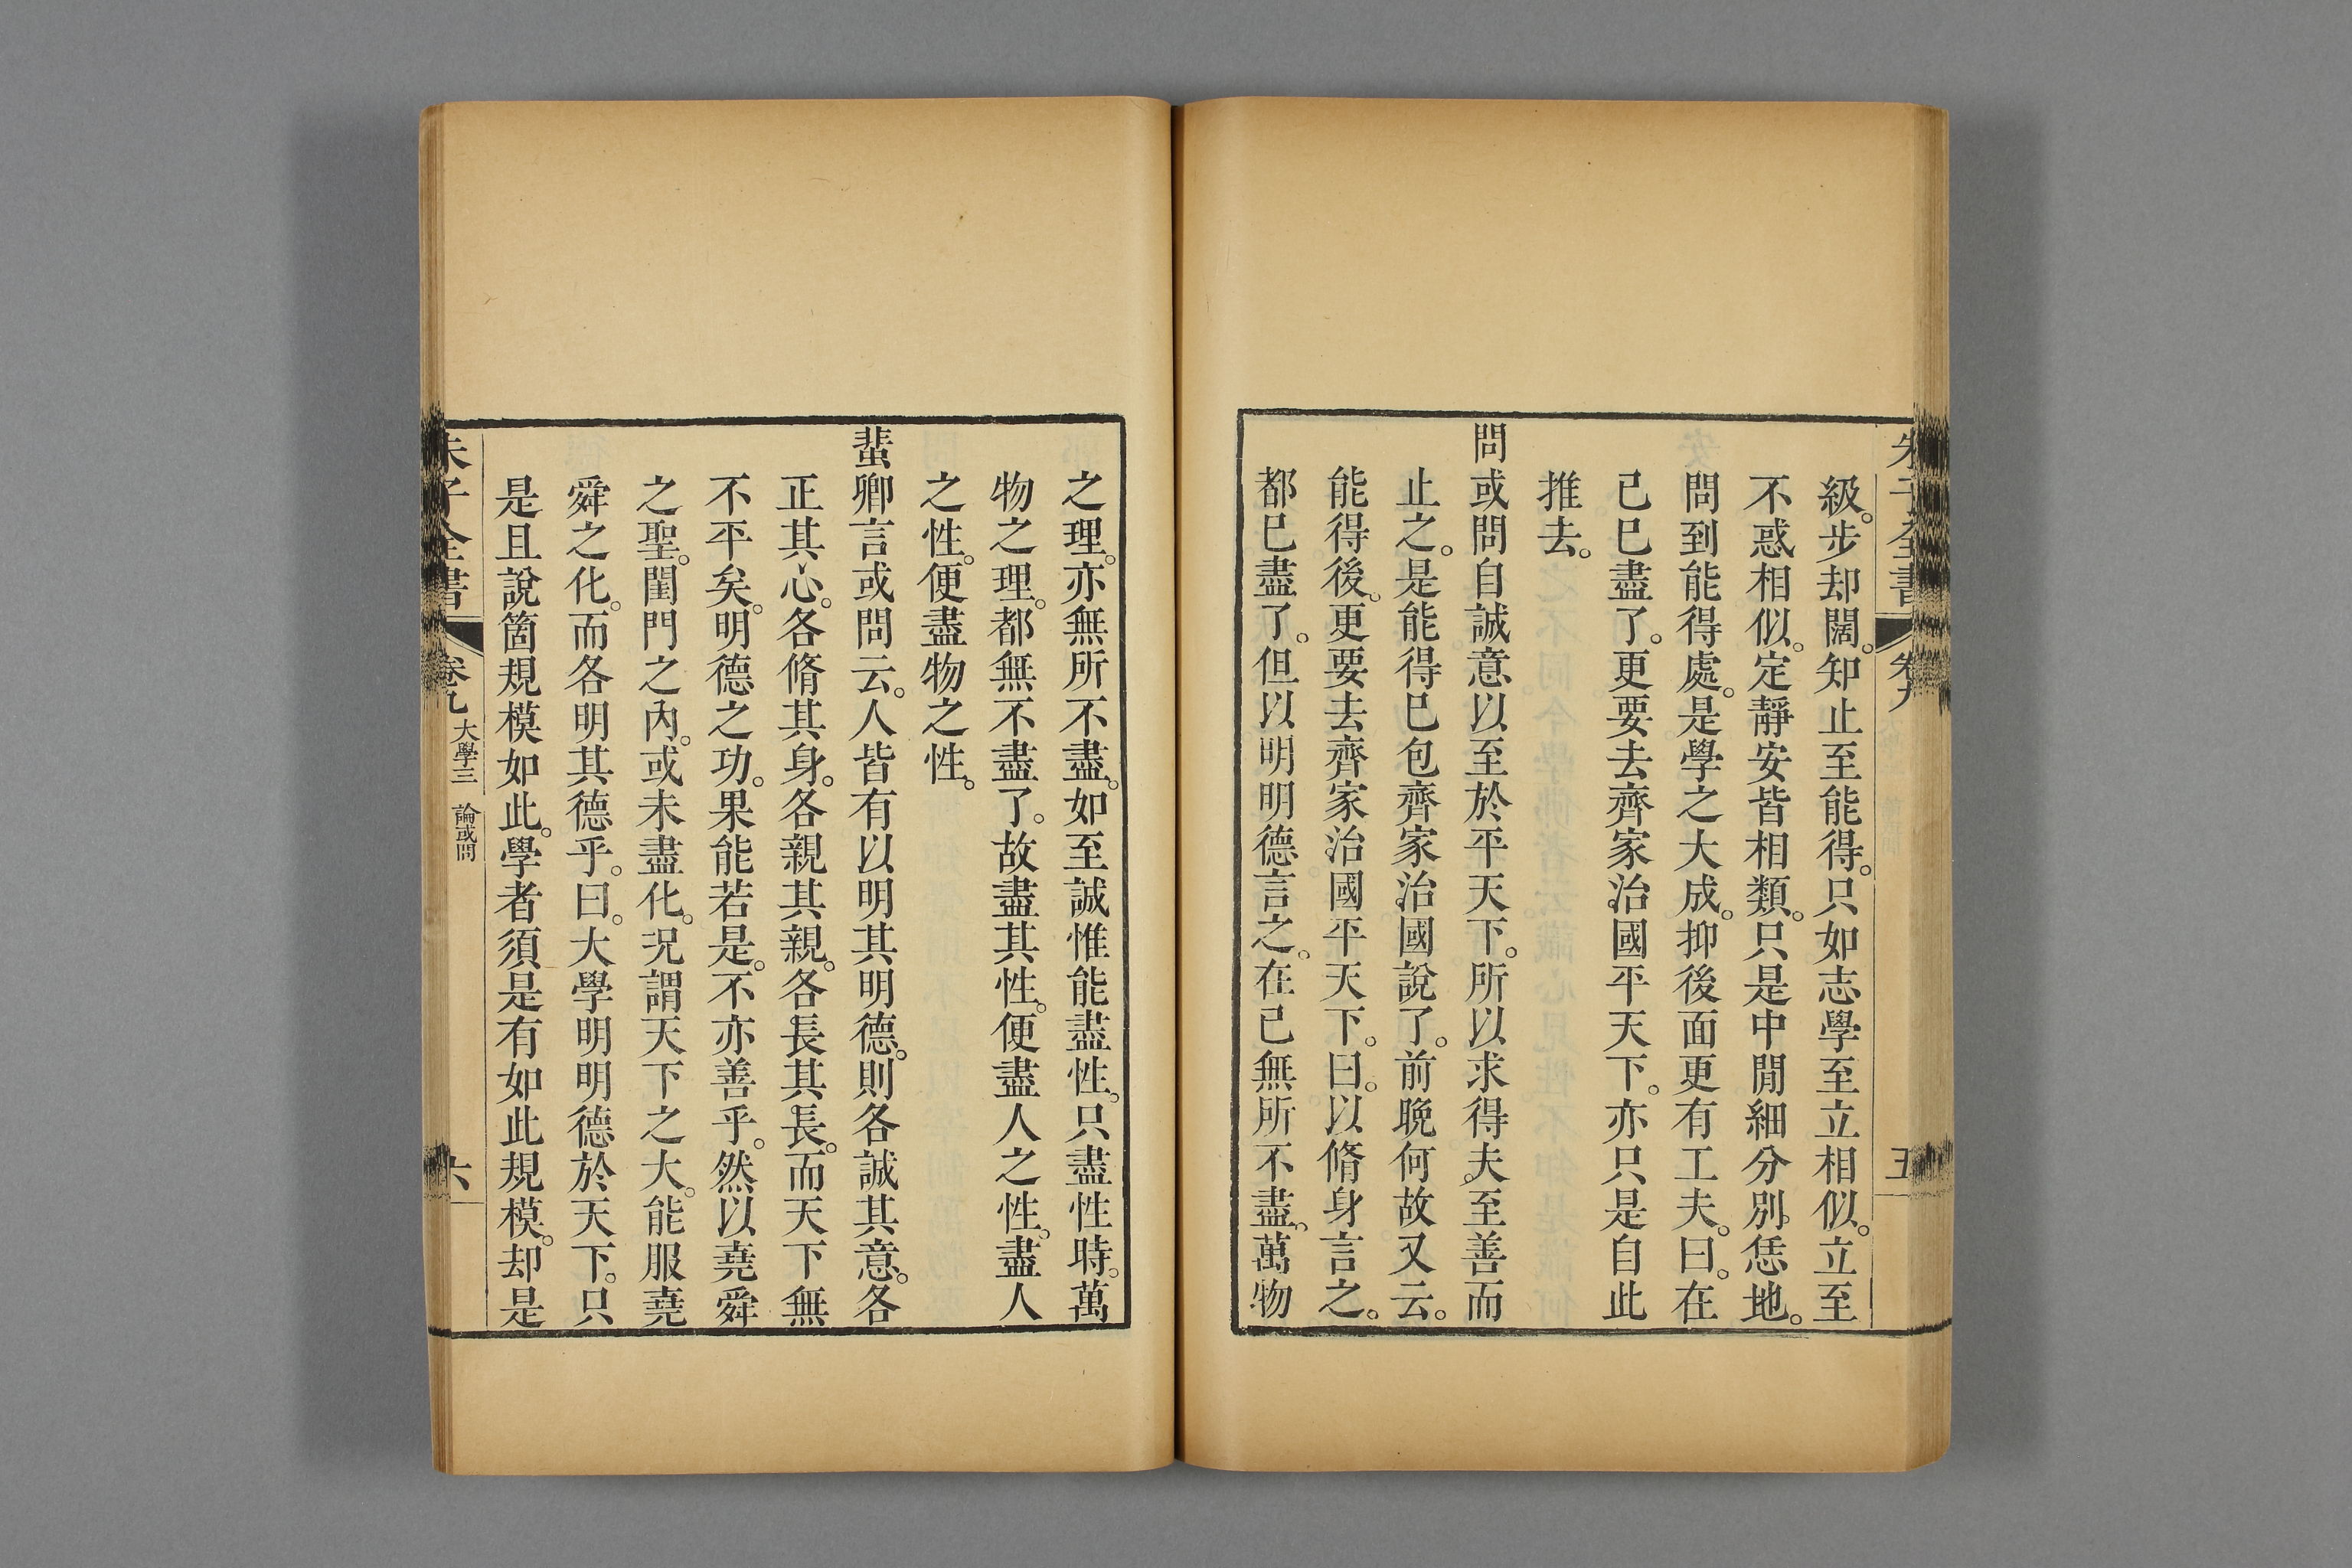 朱子全書 卷九 五
級。步却闊。知止至能得。只如志學至立相似。立至
不惑相似。定靜安皆相類。只是中閒細分別恁地。
問到能得處。是學之大成。抑後面更有工夫。曰。在
己已盡了。更要去齊家治國平天下。亦只是自此
推去。
問或問自誠意以至於平天下。所以求得夫至善而
止之。是能得已包齊家治國說了。前晚何故又云。
能得後。更要去齊家治國平天下。曰。以脩身言之。
都已盡了。但以明明德言之。在己無所不盡。萬物
之理。亦無所不盡。如至誠惟能盡性。只盡性時。萬
物之理。都無不盡了。故盡其性。便盡人之性。盡人
之性。便盡物之性。
蜚卿言或問云。人皆有以明其明德。則各誠其意。各
正其心。各脩其身。各親其親。各長其長。而天下無
不平矣。明德之功。果能若是。不亦善乎。然以堯舜
之聖。閨門之內。或未盡化。況謂天下之大。能服堯
舜之化。而各明其德乎。曰。大學明明德於天下。只
是且說箇規模如此。學者須是有如此規模。却是
朱子全書 卷九 大學三 論或問 六